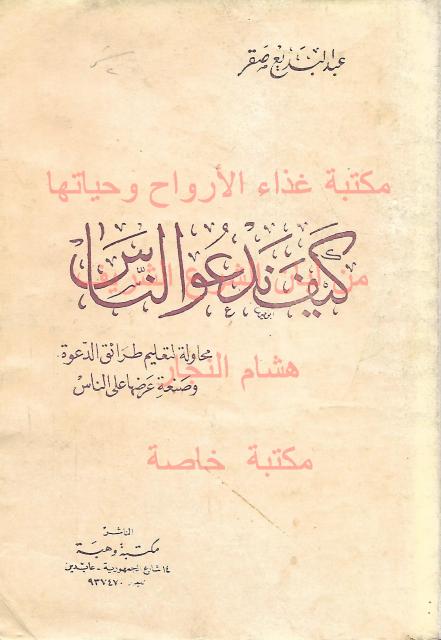 عبد البديع صقر
مكتبة غذاء الأرواح وحياتها
كيف ندعو الناس
من لبان الشرع الشريف
محاولة لتعليم طرائق الدعوة
هشام النجار
وصنعةِ عَرضها على الناسْ
مكتبة خاصة
الناشر
مكتبة وهبة
١٤ شارع الجمهورية - عابدين
٩٣٧٤٧٠